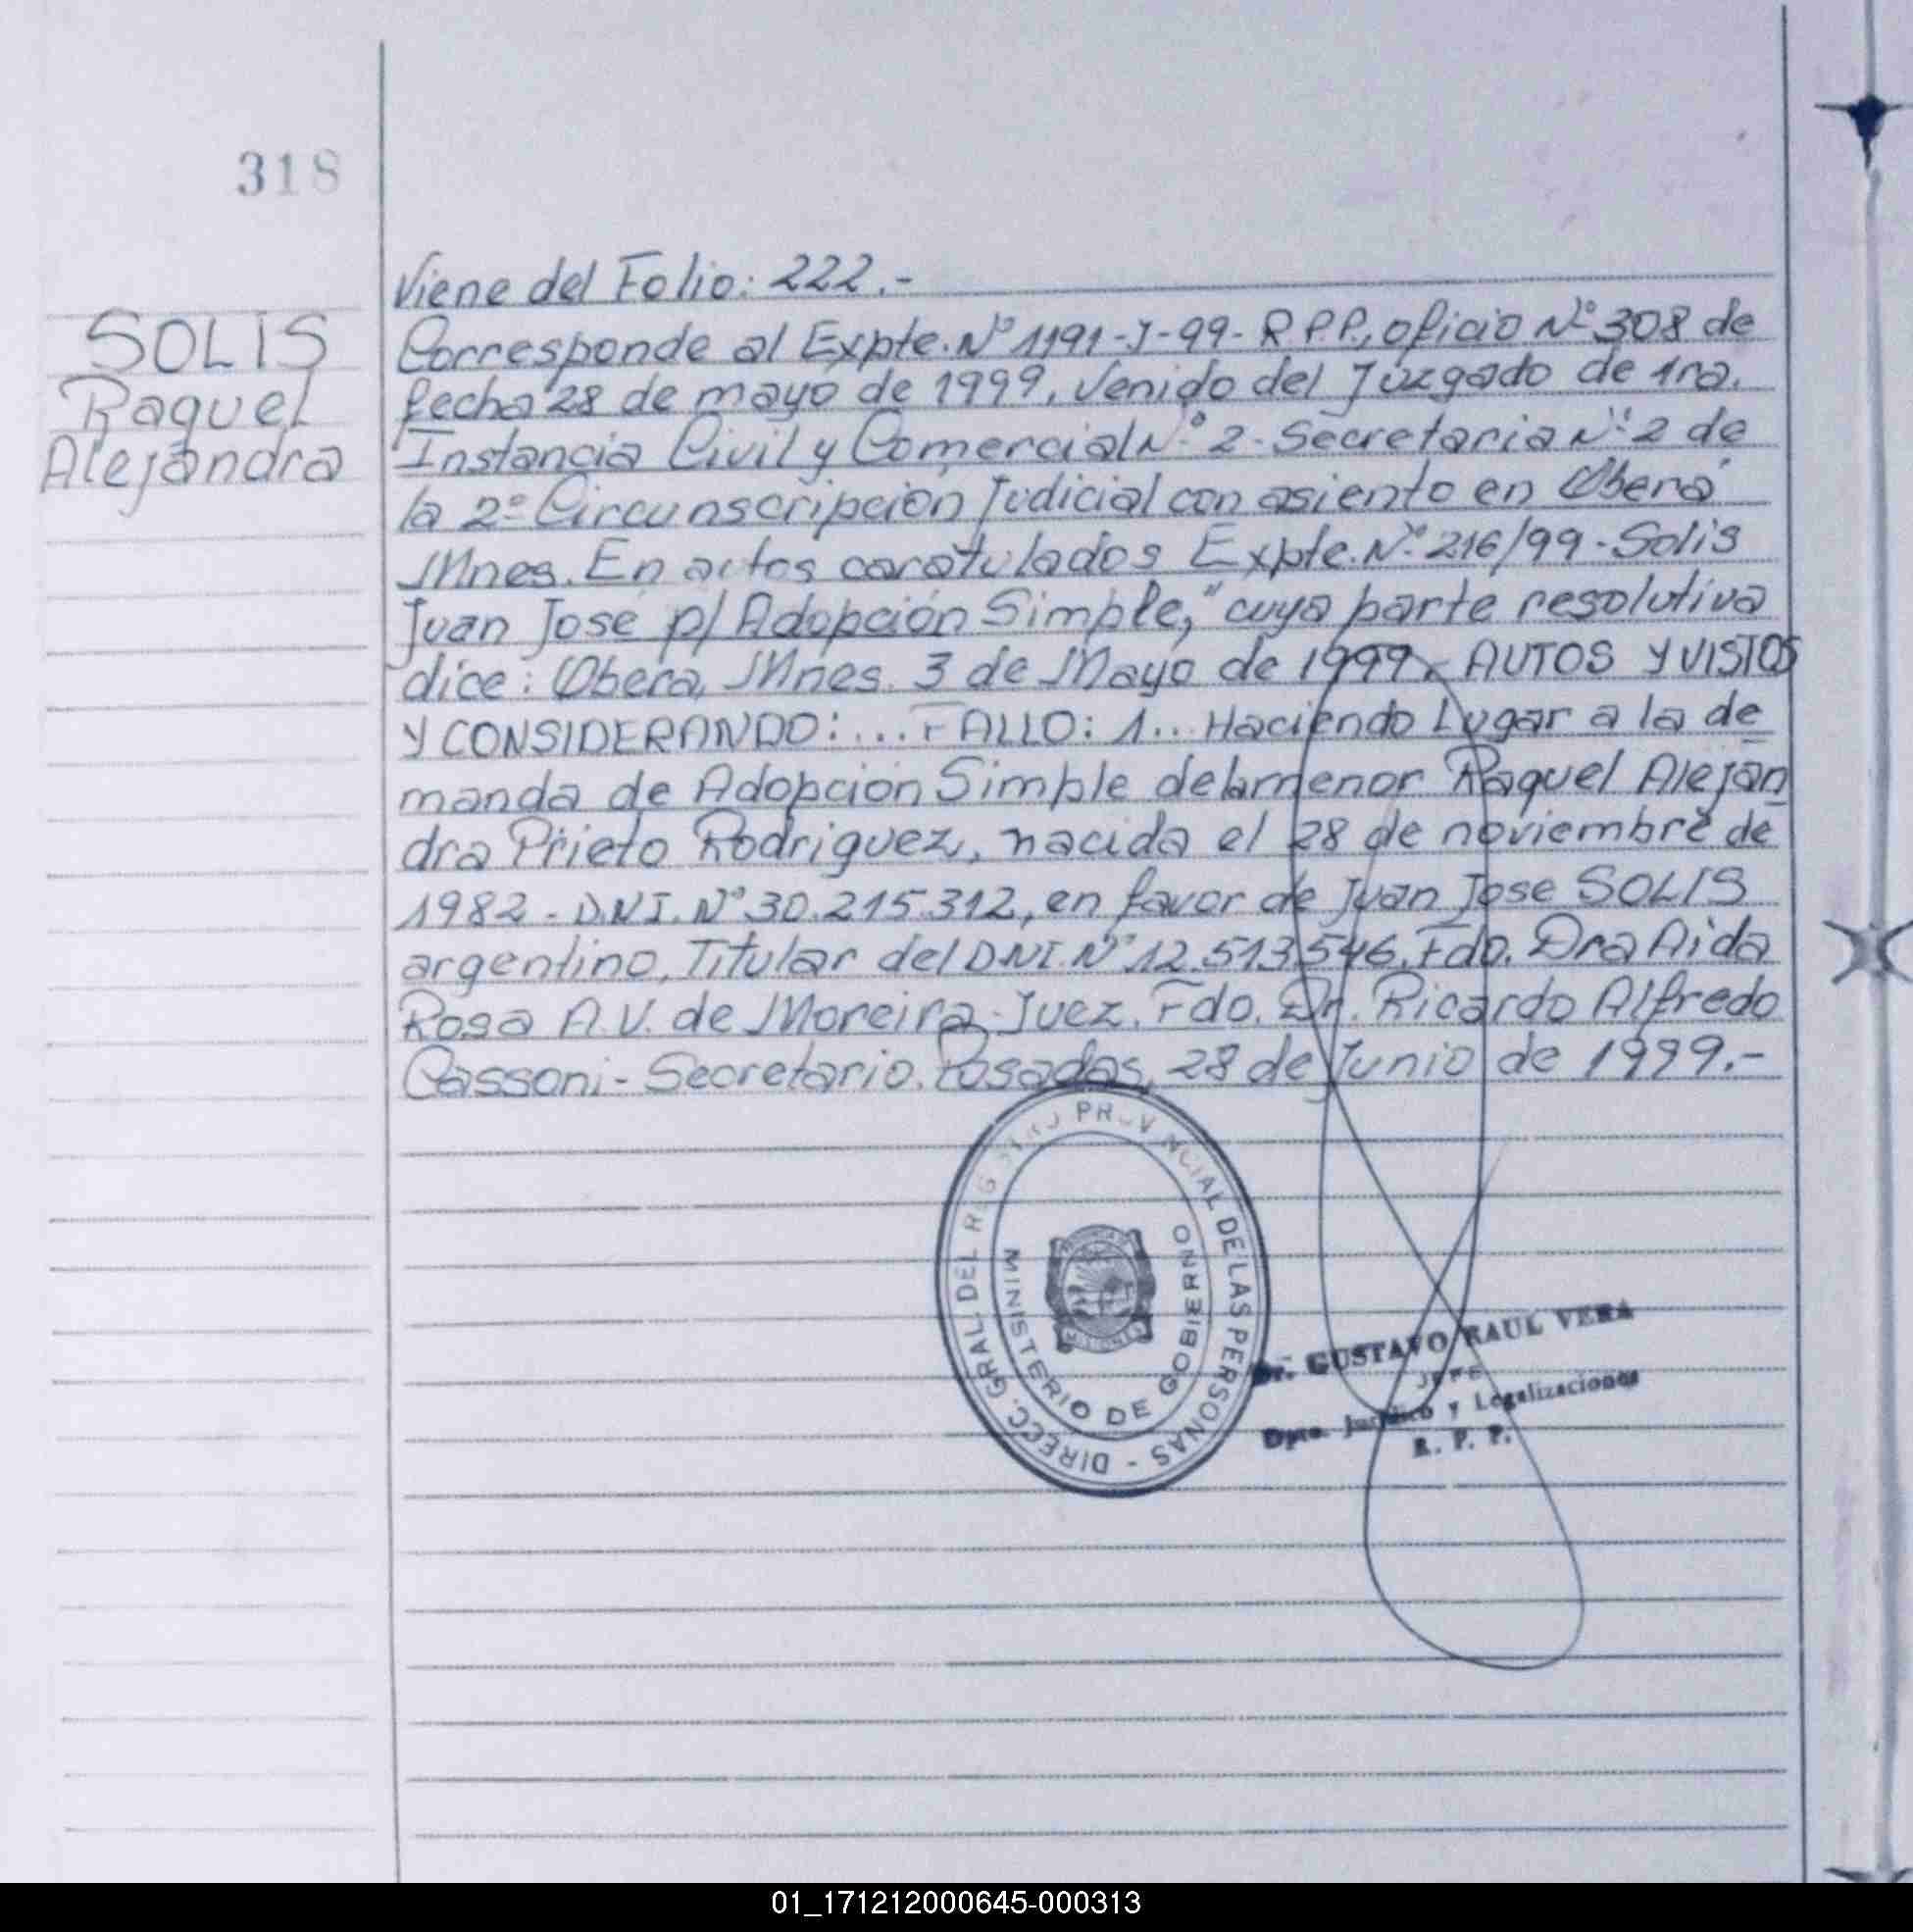 318
SOLIS
Raquel
Alejandra
Viene del Folio: 222.-
Corresponde al Expte. Nº 1191-J-99- R.P.P., oficio Nº 308 de
fecha 28 de mayo de 1999, Venido del Juzgado de 1ra.
Instancia Civil y Comercial Nº 2- Secretaria Nº 2 de
la 2º Circunscripción Judicial con asiento en Oberá
Mnes. En autos caratulados Expte. Nº 216/99-Solis
Juan José p/ Adopción Simple," cuya parte resolutiva
dice: Oberá, Mnes. 3 de Mayo de 1999.- AUTOS Y VISTOS
Y CONSIDERANDO:... FALLO: 1.. Haciendo Lugar a la de
manda de Adopción Simple de la menor Raquel Alejan
dra Prieto Rodriguez, nacida el 28 de noviembre de
1982- D.N.I. Nº 30.215.312, en favor de Juan Jose SOLIS
argentino, Titular del DNI Nº 12.513.546. Fdo. Dra Aida
Rosa A.V. de Moreira-Juez. Fdo. Dr. Ricardo Alfredo
Cassoni- Secretario. Posadas, 28 de Junio de 1999.-
DIRECC. GRAL. DEL REGISTRO PROVINCIAL DE LAS PERSONAS -
MINISTERIO DE GOBIERNO
MISIONES
Dr. GUSTAVO RAUL VERA
JEFE
Dpto. Jurídico y Legalizaciones
R. P. P.
01_171212000645-000313